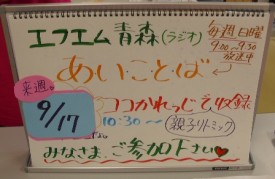 エフエム青森(ラジオ)
毎週日曜
9:00〜9:30
放送中
あいことば
来週
9/17
ココかれっじで収録
10:30〜 (親子リトミック)
みなさま、ご参加下さい♥